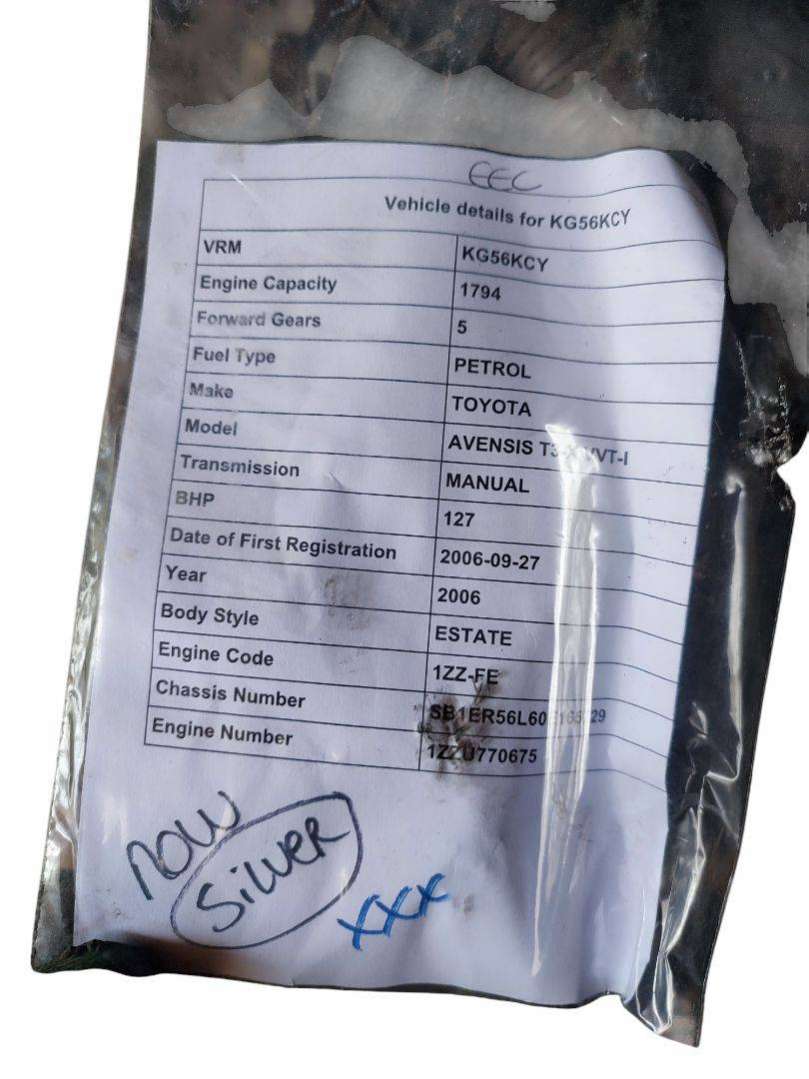 EEC
Vehicle details for KG56KCY
VRM KG56KCY
Engine Capacity 1794
Forward Gears 5
Fuel Type PETROL
Make TOYOTA
Model AVENSIS VVT-I
Transmission MANUAL
BHP 127
Date of First Registration 2006-09-27
Year 2006
Body Style ESTATE
Engine Code 1ZZ-FE
Chassis Number
Engine Number 1ZZU770675
now
Silver
xxx